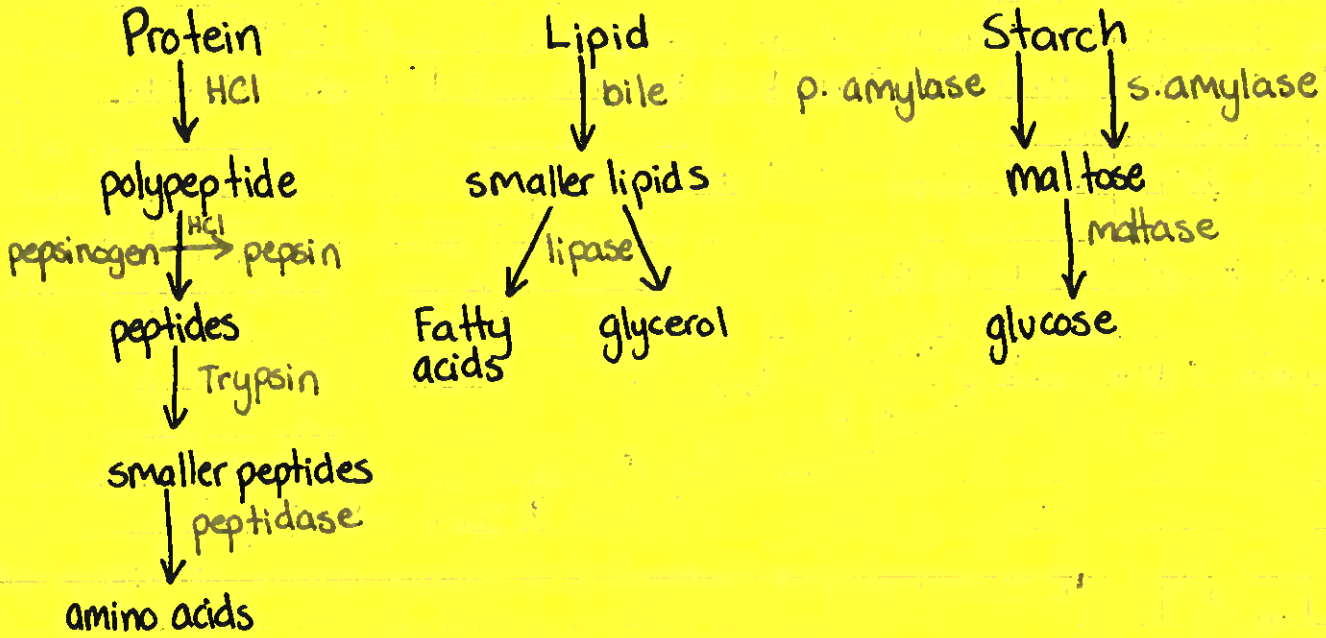 Protein
HCl
polypeptide
HCl
pepsinogen pepsin
peptides
Trypsin
smaller peptides
peptidase
amino acids
Lipid
bile
smaller lipids
lipase
Fatty
acids
glycerol
Starch
p. amylase s. amylase
maltose
maltase
glucose